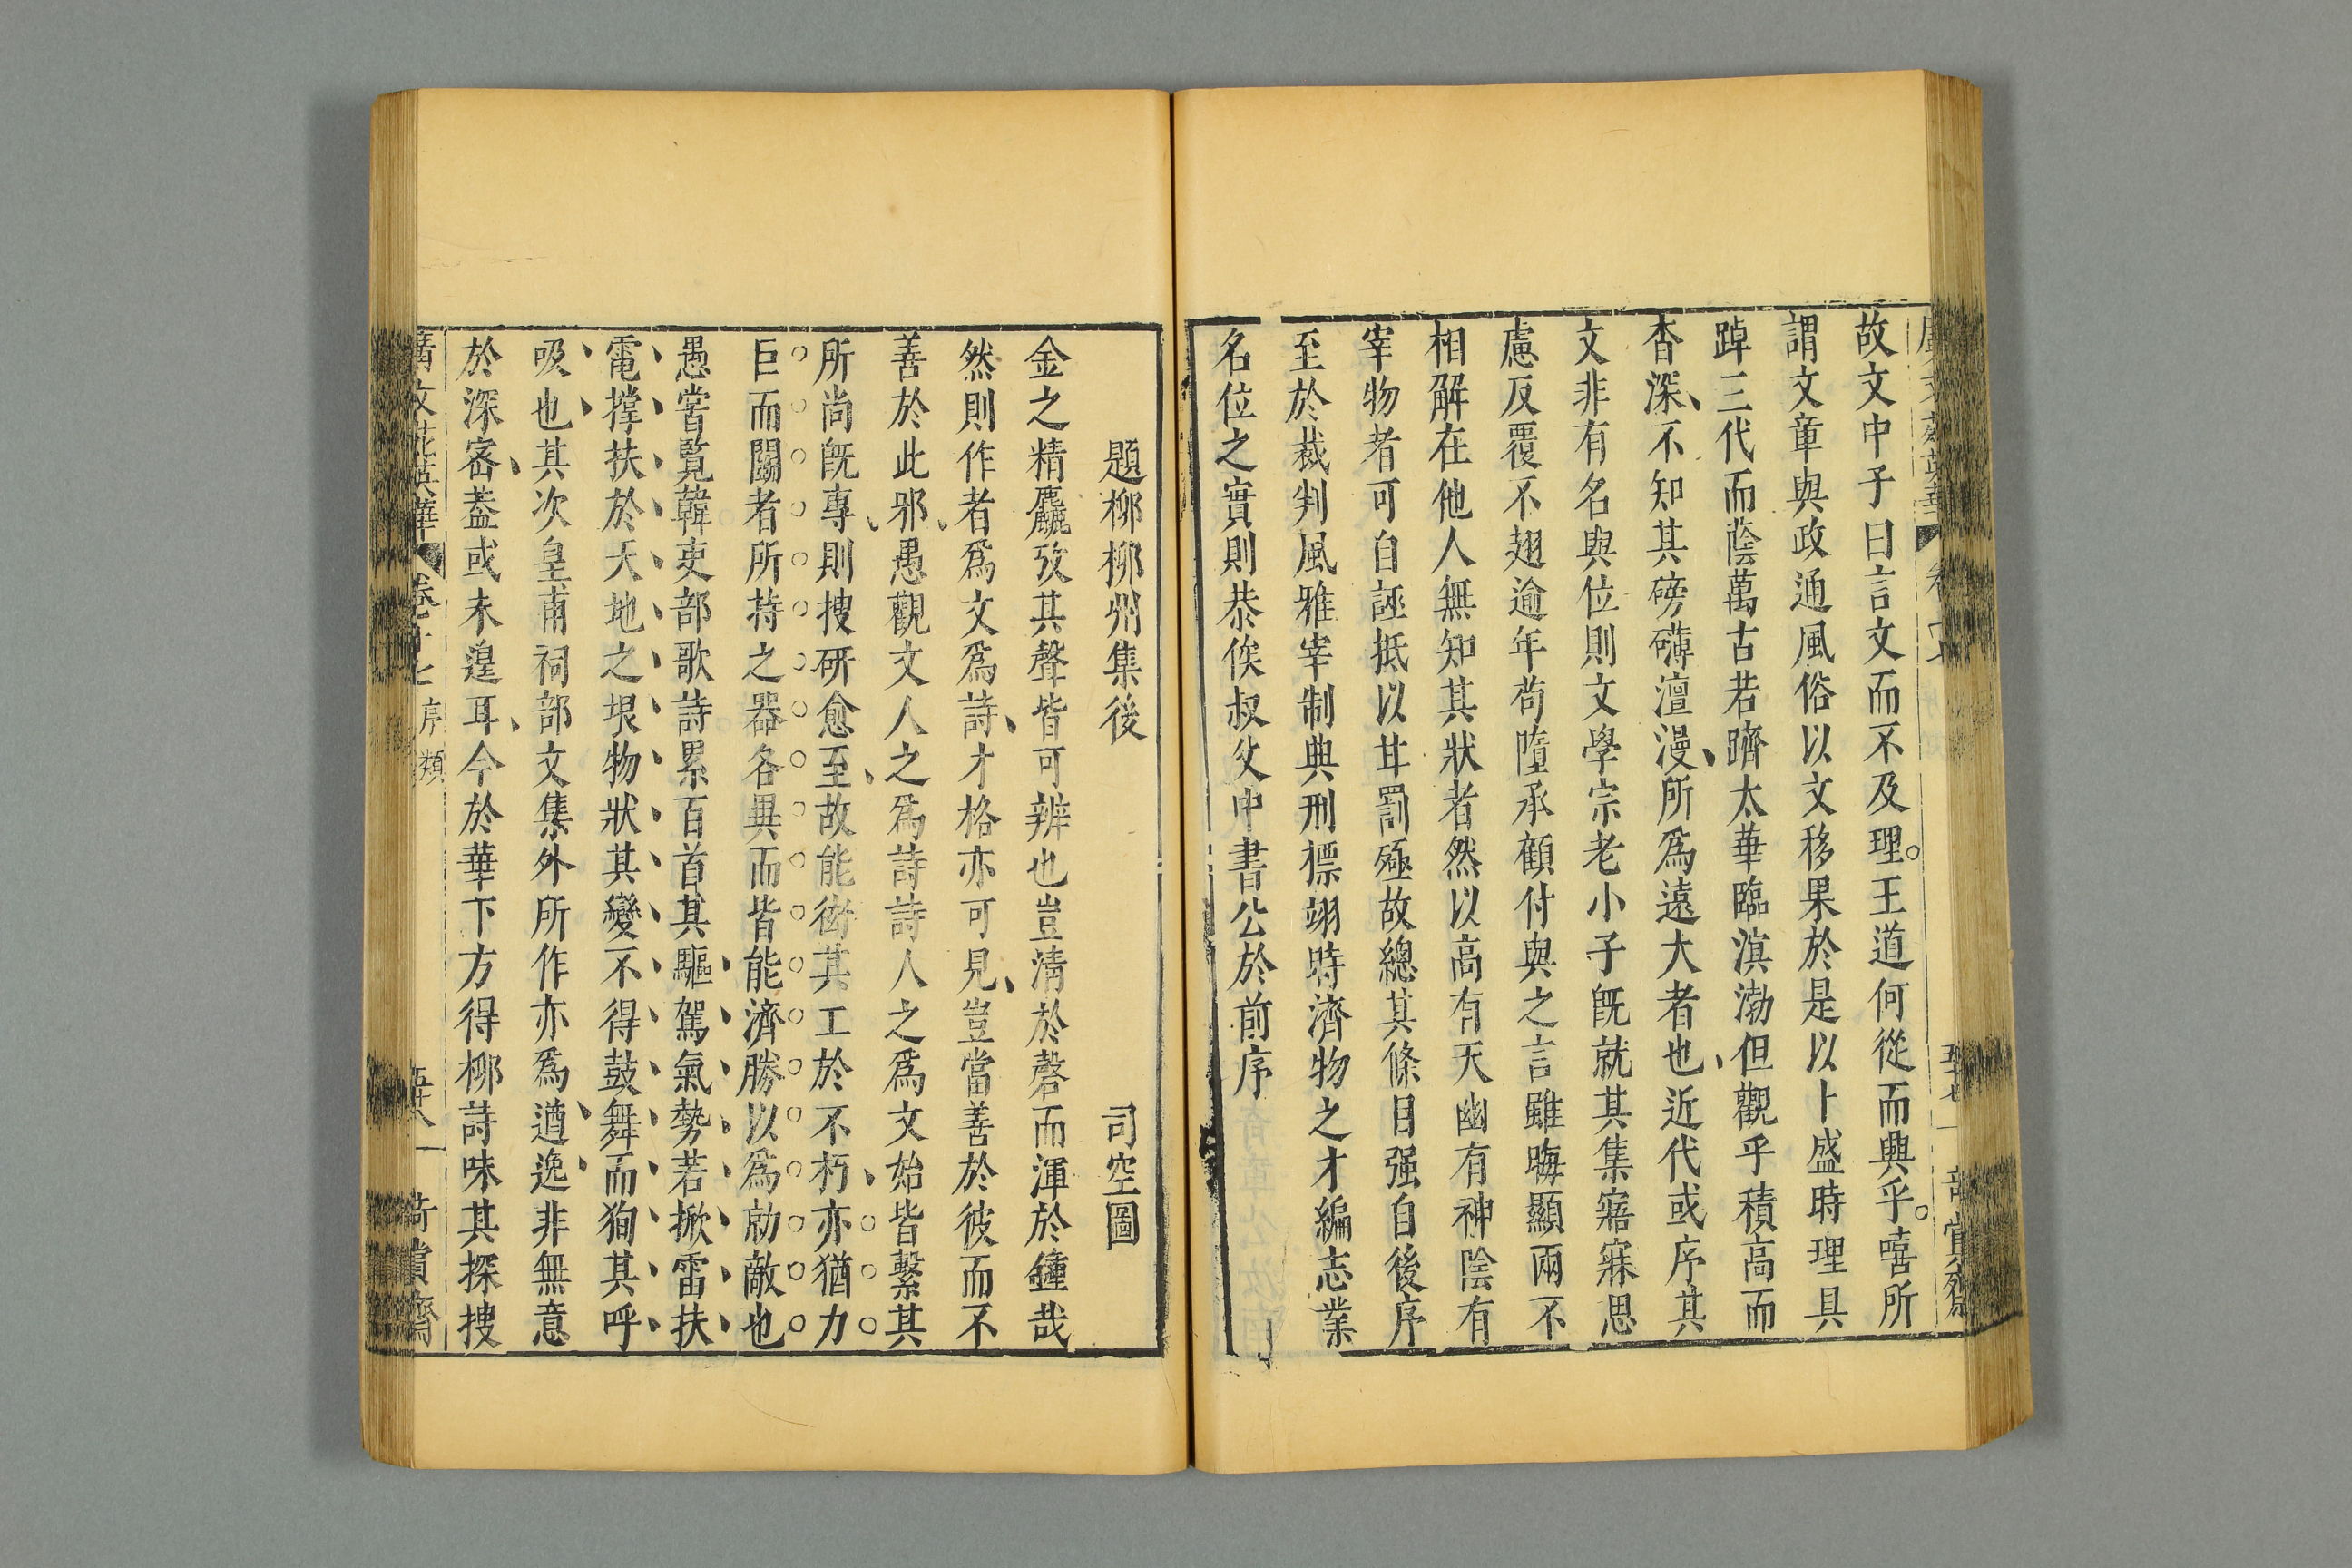 故文中子曰言文而不及理王道何從而興乎嘻所
謂文章與政通風俗以文移果於是以卜盛時理具
踔三代而蔭萬古若躋太華臨溟渤但觀乎積高而
杳深不知其磅礴澶漫所爲遠大者也近代或序其
文非有名與位則文學宗老小子旣就其集寤寐思
慮反覆不翅逾年苟墮承顧付與之言雖晦顯兩不
相解在他人無知其狀者然以高有天幽有神陰有
宰物者可自誣抵以甘罰殛故總其條目强自後序
至於裁判風雅宰制典刑摽翊時濟物之才編志業
名位之實則恭俟叔父中書公於前序
題柳柳州集後　司空圖
金之精麤攷其聲皆可辨也豈清於磬而渾於鐘哉
然則作者爲文爲詩才格亦可見豈當善於彼而不
善於此邪愚觀文人之爲詩詩人之爲文始皆繫其
所尚旣專則搜研愈至故能衒其工於不朽亦猶力
巨而鬭者所持之器各異而皆能濟勝以爲勍敵也
愚嘗覧韓吏部歌詩累百首其驅駕氣勢若掀雷扶
電撑扶於天地之垠物狀其變不得鼓舞而狥其呼
吸也其次皇甫祠部文集外所作亦爲遒逸非無意
於深密葢或未遑耳今於華下方得柳詩味其探搜
廣文苑英華　卷十七　序類　奇賞齋